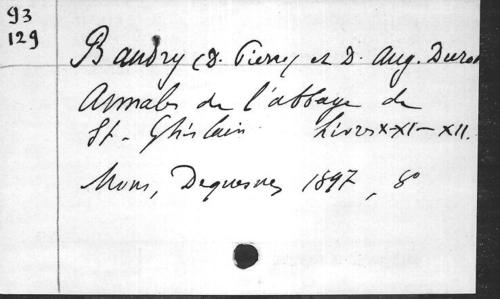 93
129
Baudry (D. Pierre) et D. Aug. Durot
Annales de l'abbaye de
St. Ghislain. Livres X-XI-XII.
Mons, Dequesne, 1897, 8°